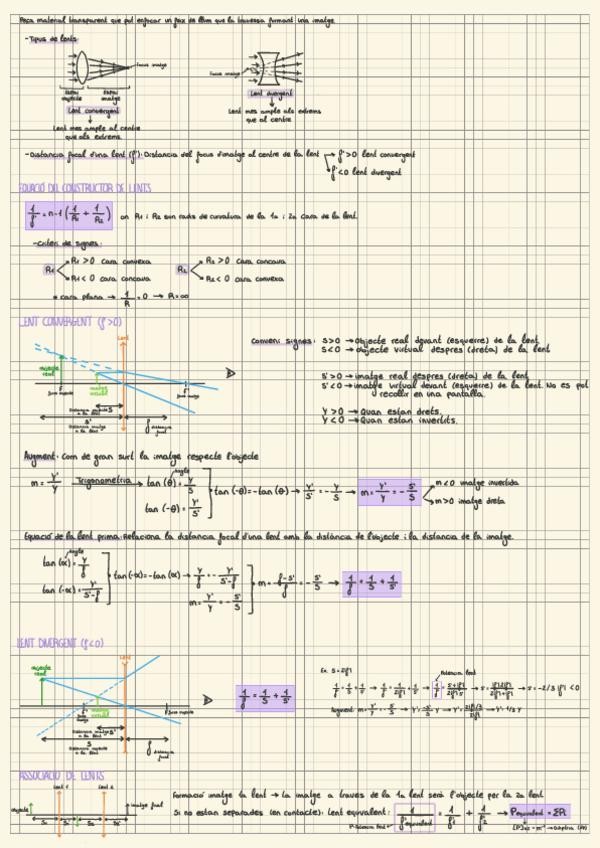 Peça material transparent que pot enfocar un feix de llum que la travessa formant una imatge.
-Tipus de lents
focus imatge
focus imatge
Espai objecte
Espai imatge
Lent convergent
Lent divergent
Lent mes ample al centre
que als extrems.
Lent mes ample als extrems
que al centre
-Distancia focal d'una lent (f'): Distancia del focus d'imatge al centre de la lent
f'>0 lent convergent
f'<0 lent divergent
EQUACIÓ DEL CONSTRUCTOR DE LENTS
1/f' = n-1 (1/R1 + 1/R2) on R1 i R2 son radis de curvatura de la 1a i 2a cara de la lent.
-Criteri de signes:
R1 R1 > 0 cara convexa
R1 < 0 cara concava
R2 R2 > 0 cara concava
R2 < 0 cara convexa
* cara plana → 1/R = 0 → R=∞
LENT CONVERGENT (f'>0)
Lent
objecte real
imatge virtual
Distancia objecte a la lent
Distancia imatge a la lent
f distancia focal
Conveni signes: S>0 → Objecte real devant (esquerre) de la lent
S<0 → objecte virtual despres (dreta) de la lent
S'>0 → imatge real despres (dreta) de la lent
S'<0 → imatge virtual devant (esquerre) de la lent. No es pot
recollir en una pantalla.
Y>0 → Quan estan drets.
Y<0 → Quan estan invertits.
Augment: Com de gran surt la imatge respecte l'objecte
m = Y'/Y Trigonometria → tan (θ) = Y/S
angle
tan (-θ) = Y'/S'
tan (-θ) = -tan (θ) → Y'/S' = -Y/S → m = Y'/Y = -S'/S
m<0 imatge invertida
m>0 imatge dreta
Equació de la lent prima: Relaciona la distancia focal d'una lent amb la distància de l'objecte i la distancia de la imatge.
angle
tan (α) = Y/f
tan (-α) = Y'/S'-f
tan (-α) = -tan (α) → Y/f = -Y'/S'-f
m = Y'/Y = -S'/S
m = f-S'/f = -S'/S → 1/f = 1/S + 1/S'
LENT DIVERGENT (f<0)
Lent
objecte real
imatge virtual
Distancia imatge a la lent
S
Distancia objecte a la lent
f distancia focal
1/f = 1/S + 1/S'
Ex: S=2|f|
Potencia lent
→ S'=-2/3 |f| <0
Augment: m = Y'/Y = -S'/S
→ Y'=1/3 Y
ASSOCIACIÓ DE LENTS
Lent 1
Lent 2
objecte
imatge final
Formació imatge 1a lent → La imatge a traves de la 1a lent serà l'objecte per la 2a lent
Si no estan separades (en contacte): Lent equivalent: 1/f' equivalent = 1/f'1 + 1/f'2 → Pequivalent = ΣPi
P: Potencia lent
[P]SI = m⁻¹ → Diòptria (D)